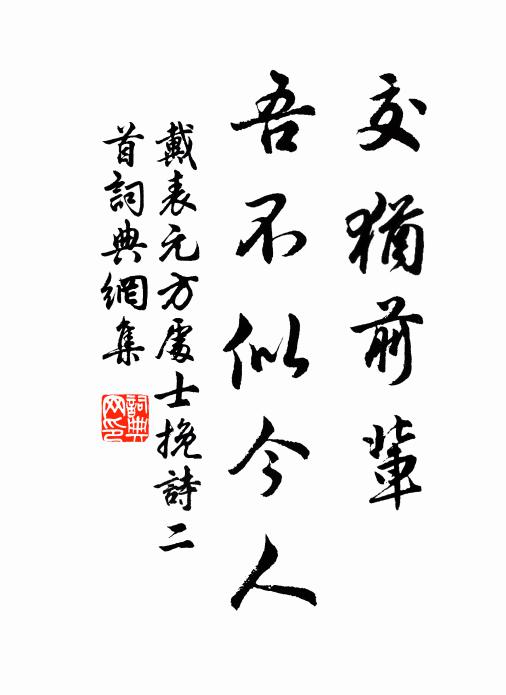 交猶前輩
吾不似今人
戴表元方處士挽詩二
首詞典網集
詞典網印